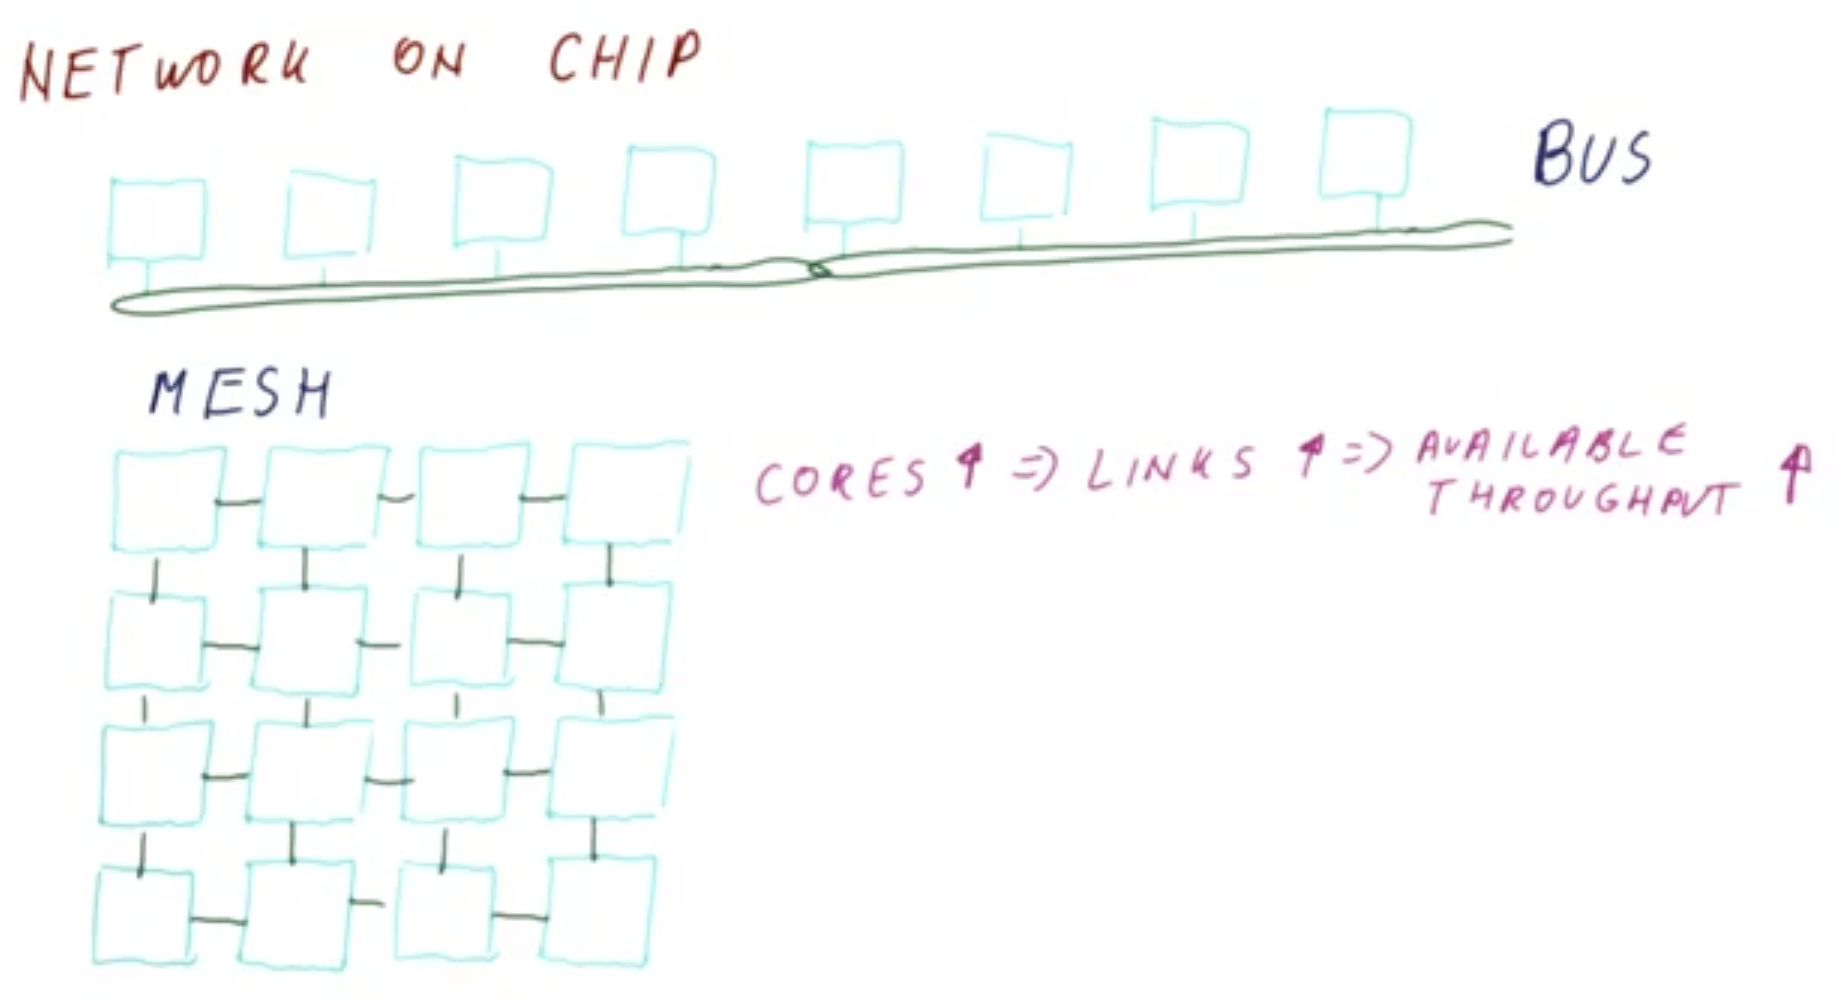 NETWORK ON CHIP
BUS
MESH
CORES ↑ => LINKS ↑ => AVAILABLE THROUGHPUT ↑